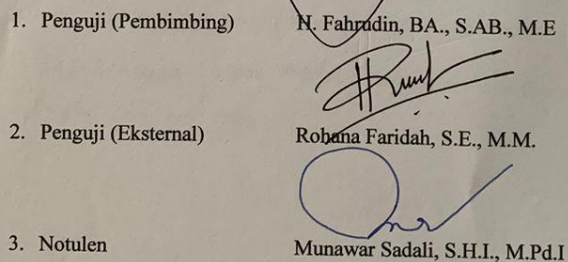 1. Penguji (Pembimbing) H. Fahrudin, BA., S.AB., M.E
2. Penguji (Eksternal) Rohana Faridah, S.E., M.M.
3. Notulen Munawar Sadali, S.H.I., M.Pd.I